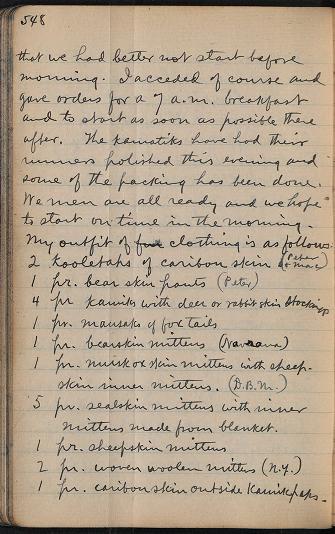 548
that we had better not start before
morning. I acceded of course and
gave orders for a 7 a.m. breakfast
and to start as soon as possible there
after. The kamatiks have had their
runners polished this evening and
some of the packing has been done.
We men are all ready and we hope
to start on time in the morning.
My outfit of clothing is as follows.
2 Kooletahs of caribou skin (Peter & Mac)
1 pr. bear skin pants (Peter)
4 pr kamiks with deer or rabbit skin stockings
1 pr. of fox tails
1 pr. bearskin mittens
1 pr. musk ox skin mittens with sheep-
skin inner mittens. (D.B.M.)
5 pr. sealskin mittens with inner
mittens made from blanket.
1 pr. sheepskin mittens
2 pr. woven woolen mittens (N.Y.)
1 pr. caribou skin outside